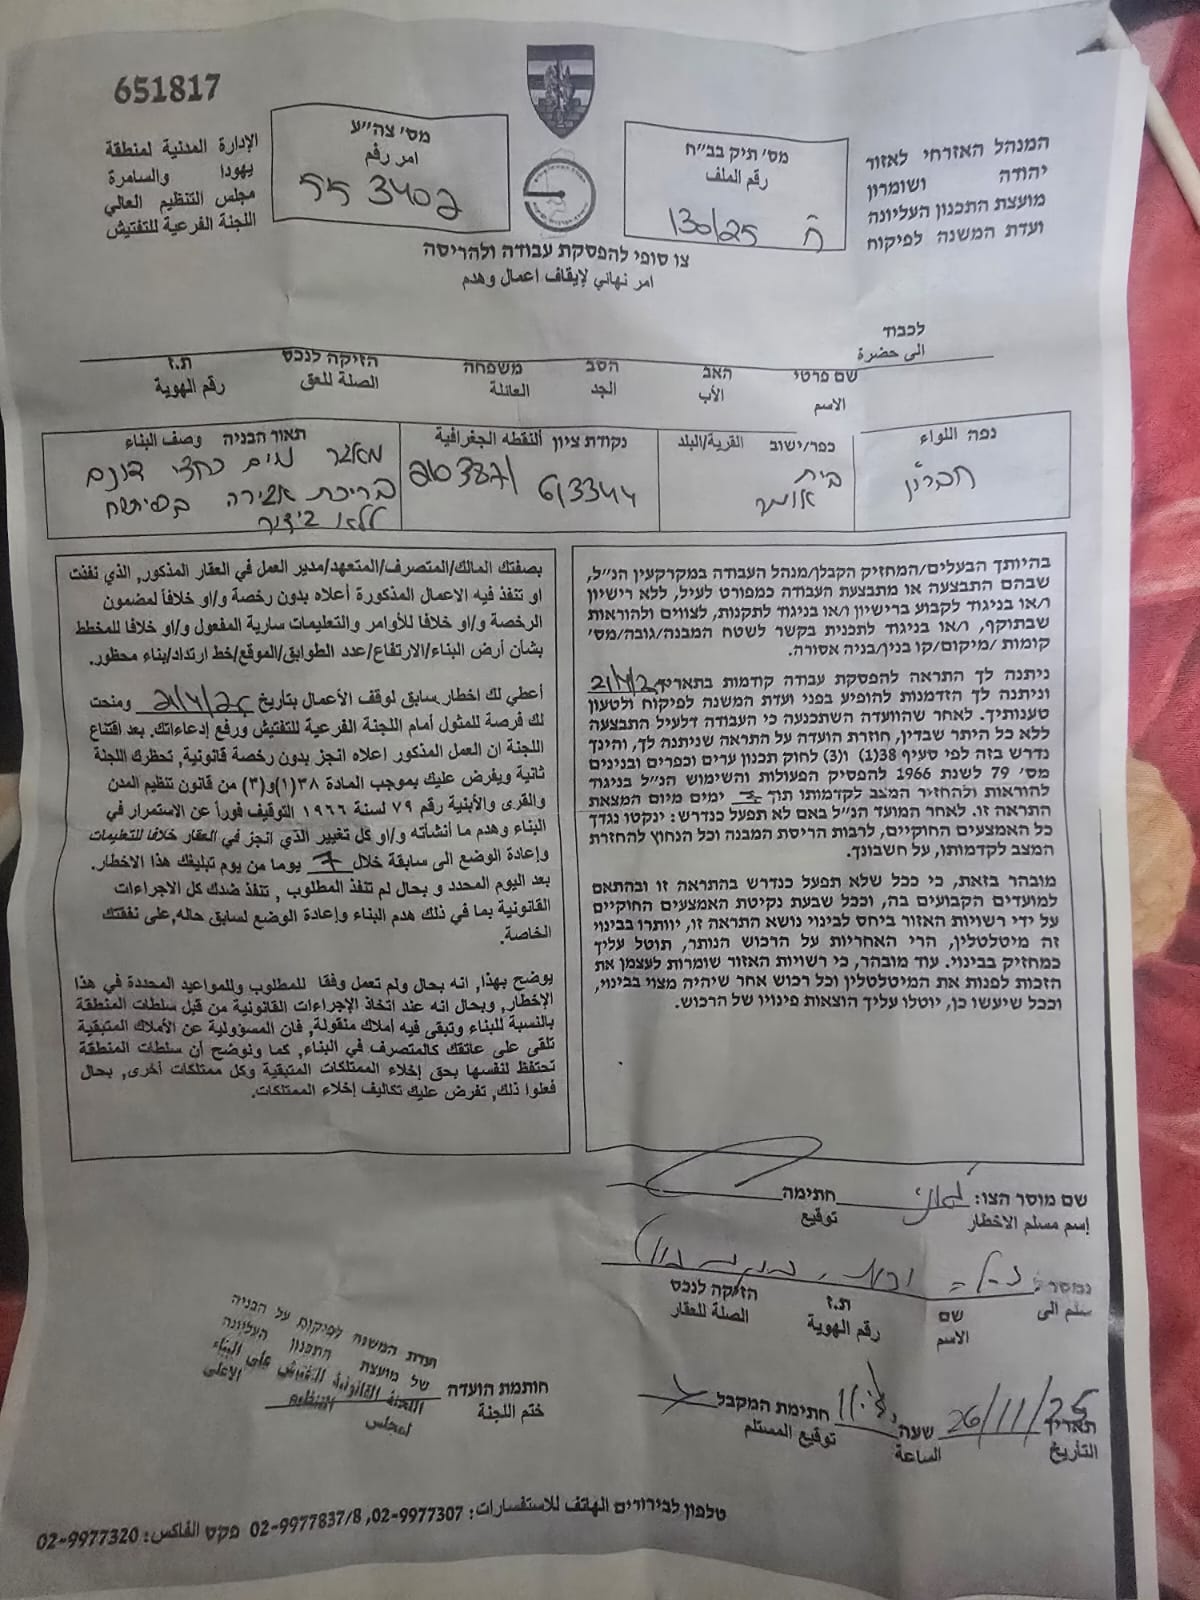 651817
המנהל האזרחי לאזור
יהודה ושומרון
מועצת התכנון העליונה
ועדת המשנה לפיקוח
מס׳ תיק בב״ח
رقم الملف
ח 130/25
מס׳ צה״ע
امر رقم
553402
الإدارة المدنية لمنطقة
يهودا والسامرة
مجلس التنظيم العالي
اللجنة الفرعية للتفتيش
צו סופי להפסקת עבודה ולהריסה
امر نهائي لإيقاف اعمال وهدم
לכבוד
الى حضرة
שם פרטי האב הסב משפחה הזיקה לנכס ת.ז
الاسم الأب الجد العائلة الصلة للعق رقم الهوية
נפה اللواء
חברון
כפר/ישוב القرية/البلد
בית
אומר
נקודת ציון النقطه الجغرافية
613344
תאור הבניה وصف البناء
מאגר מים כחצי דונם
בריכת אגירה
ללא
בהיותך הבעלים/המחזיק הקבלן/מנהל העבודה במקרקעין הנ״ל,
שבהם התבצעה או מתבצעת העבודה כמפורט לעיל, ללא רישיון
ו/או בניגוד לקבוע ברישיון ו/או בניגוד לתקנות, לצווים ולהוראות
שבתוקף, ו/או בניגוד לתכנית בקשר לשטח המבנה/גובה/מס׳
קומות /מיקום/קו בנין/בניה אסורה.
ניתנה לך התראה להפסקת עבודה קודמות בתאריך
וניתנה לך הזדמנות להופיע בפני ועדת המשנה לפיקוח ולטעון
טענותיך. לאחר שהוועדה השתכנעה כי העבודה דלעיל התבצעה
ללא כל היתר שבדין, חוזרת הועדה על התראה שניתנה לך, והינך
נדרש בזה לפי סעיף 38(1) ו(3) לחוק תכנון ערים וכפרים ובנינים
מס׳ 79 לשנת 1966 להפסיק הפעולות והשימוש הנ״ל בניגוד
להוראות ולהחזיר המצב לקדמותו תוך 7 ימים מיום המצאת
התראה זו. לאחר המועד הנ״ל באם לא תפעל כנדרש: ינקטו נגדך
כל האמצעים החוקיים, לרבות הריסת המבנה וכל הנחוץ להחזרת
המצב לקדמותו, על חשבונך.
מובהר בזאת, כי ככל שלא תפעל כנדרש בהתראה זו ובהתאם
למועדים הקבועים בה, וככל שבעת נקיטת האמצעים החוקיים
על ידי רשויות האזור ביחס לבינוי נושא התראה זו, יוותרו בבינוי
זה מיטלטלין, הרי האחריות על הרכוש הנותר, תוטל עליך
כמחזיק בבינוי. עוד מובהר, כי רשויות האזור שומרות לעצמן את
הזכות לפנות את המיטלטלין וכל רכוש אחר שיהיה מצוי בבינוי,
וככל שיעשו כן, יוטלו עליך הוצאות פינויו של הרכוש.
بصفتك المالك/المتصرف/المتعهد/مدير العمل في العقار المذكور, الذي نفذت
او تنفذ فيه الاعمال المذكورة أعلاه بدون رخصة و/او خلافاً لمضمون
الرخصة و/او خلافا للأوامر والتعليمات سارية المفعول و/او خلافا للمخطط
بشأن أرض البناء/الارتفاع/عدد الطوابق/الموقع/خط ارتداد/بناء محظور.
أعطي لك اخطار سابق لوقف الأعمال بتاريخ ومنحت
لك فرصة للمثول أمام اللجنة الفرعية للتفتيش ورفع إدعاءاتك. بعد اقتناع
اللجنة ان العمل المذكور اعلاه انجز بدون رخصة قانونية, تحظرك اللجنة
ثانية ويفرض عليك بموجب المادة ٣٨(١)و(٣) من قانون تنظيم المدن
والقرى والأبنية رقم ٧٩ لسنة ١٩٦٦ التوقيف فوراً عن الاستمرار في
البناء وهدم ما أنشأته و/او كل تغيير الذي انجز في العقار خلافا للتعليمات
وإعادة الوضع الى سابقة خلال 7 يوما من يوم تبليغك هذا الاخطار.
بعد اليوم المحدد و بحال لم تنفذ المطلوب , تنفذ ضدك كل الاجراءات
القانونية بما في ذلك هدم البناء وإعادة الوضع لسابق حاله, على نفقتك
الخاصة.
يوضح بهذا, انه بحال ولم تعمل وفقا للمطلوب وللمواعيد المحددة في هذا
الإخطار, وبحال انه عند اتخاذ الإجراءات القانونية من قبل سلطات المنطقة
بالنسبة للبناء وتبقى فيه أملاك منقولة, فان المسؤولية عن الأملاك المتبقية
تلقى على عاتقك كالمتصرف في البناء, كما ونوضح أن سلطات المنطقة
تحتفظ لنفسها بحق إخلاء الممتلكات المتبقية وكل ممتلكات أخرى, بحال
فعلوا ذلك, تفرض عليك تكاليف إخلاء الممتلكات.
שם מוסר הצו: חתימה
إسم مسلم الاخطار توقيع
נמסר ל
سلم الى שם ת.ז הזיקה לנכס
الاسم رقم الهوية الصلة للعقار
תאריך 26/11/25 שעה חתימת המקבל
التأريخ الساعة توقيع المستلم
חותמת הועדה
ختم اللجنة
ועדת המשנה לפיקוח על הבניה
של מועצת התכנון העליונה
טלפון לבירורים الهاتف للاستفسارات: 02-9977307, 02-9977837/8 פקס الفاكس: 02-9977320